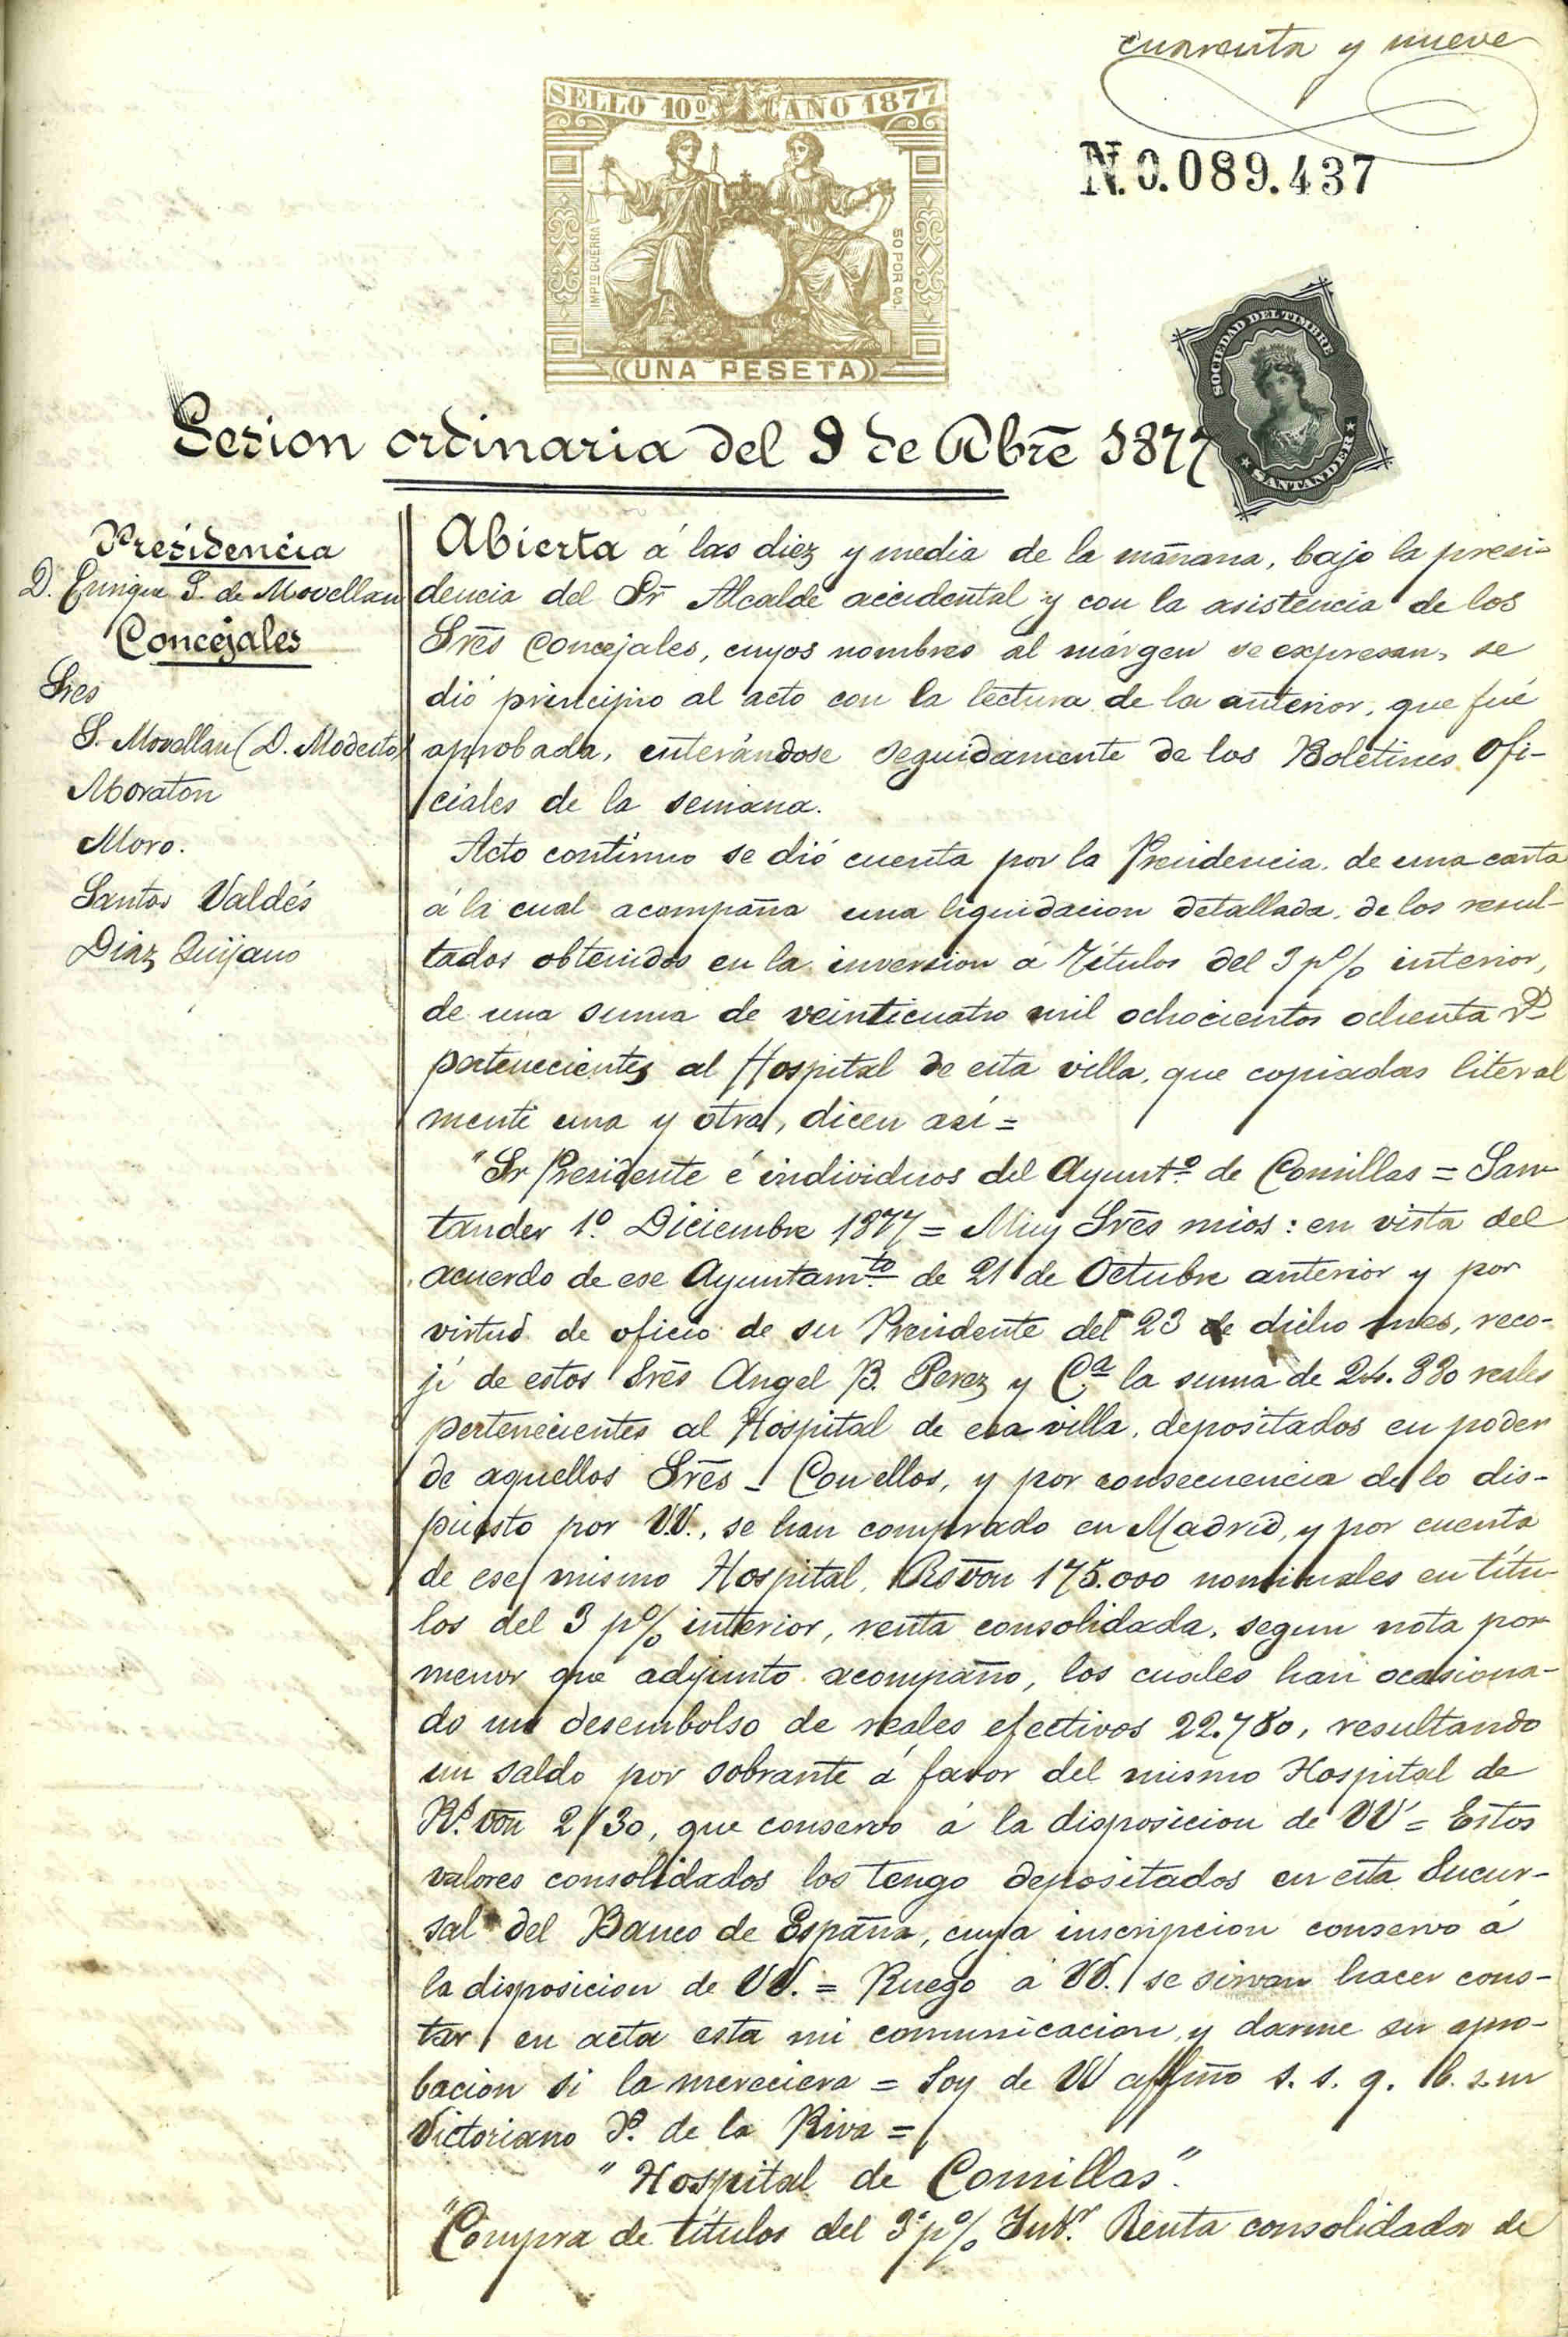 cuarenta y nueve
SELLO 10º AÑO 1877
IMPTO GUERRA
50 POR C/O.
UNA PESETA
N.0.089.437
SOCIEDAD DEL TIMBRE
SANTANDER
Sesion ordinaria del 9 de Dbre 1877
Presidencia
D. Enrique S. de Movellan
Concejales
Sres
S. Movellan (D. Modesto)
Moraton
Moro.
Santos Valdés
Diaz Quijano
Abierta á las diez y media de la mañana, bajo la presi-
dencia del Sr Alcalde accidental y con la asistencia de los
Sres Concejales, cuyos nombres al márgen se expresan, se
dió principio al acto con la lectura de la anterior, que fué
aprobada, enterándose seguidamente de los Boletines Ofi-
ciales de la semana.
Acto continuo se dió cuenta por la Presidencia, de una carta
á la cual acompaña una liquidacion detallada, de los resul-
tados obtenidos en la inversion á Títulos del 3 p% interior,
de una suma de veinticuatro mil ochocientos ochenta rs
pertenecientes al Hospital de esta villa, que copiadas literal
mente una y otra, dicen así =
"Sr Presidente é individuos del Ayuntº de Comillas = San-
tander 1º. Diciembre 1877 = Muy Sres mios: en vista del
acuerdo de ese Ayuntamto de 21 de Octubre anterior y por
virtud de oficio de su Presidente del 23 de dicho mes, reco-
jí de estos Sres Angel B. Perez y Cª la suma de 24.880 reales
pertenecientes al Hospital de esa villa, depositados en poder
de aquellos Sres - Con ellos, y por consecuencia de lo dis-
puesto por VV., se han comprado en Madrid, y por cuenta
de ese mismo Hospital, Rs von 175.000 nominales en títu-
los del 3 p% interior, renta consolidada, segun nota por
menor que adjunto acompaño, los cuales han ocasiona-
do un desembolso de reales efectivos 22.750, resultando
un saldo por sobrante á favor del mismo Hospital de
Rs. von 2130, que conservo á la disposicion de VV = Estos
valores consolidados los tengo depositados en esta Sucur-
sal del Banco de España, cuya inscripcion conservo á
la disposicion de VV. = Ruego á VV. se sirvan hacer cons-
tar en acta esta mi comunicacion y darme su apro-
bacion si la mereciera = Soy de VV affmo s. s. q. b. s m
Victoriano P. de la Riva =
"Hospital de Comillas".
"Compra de títulos del 3 p% Intr. Renta consolidada de